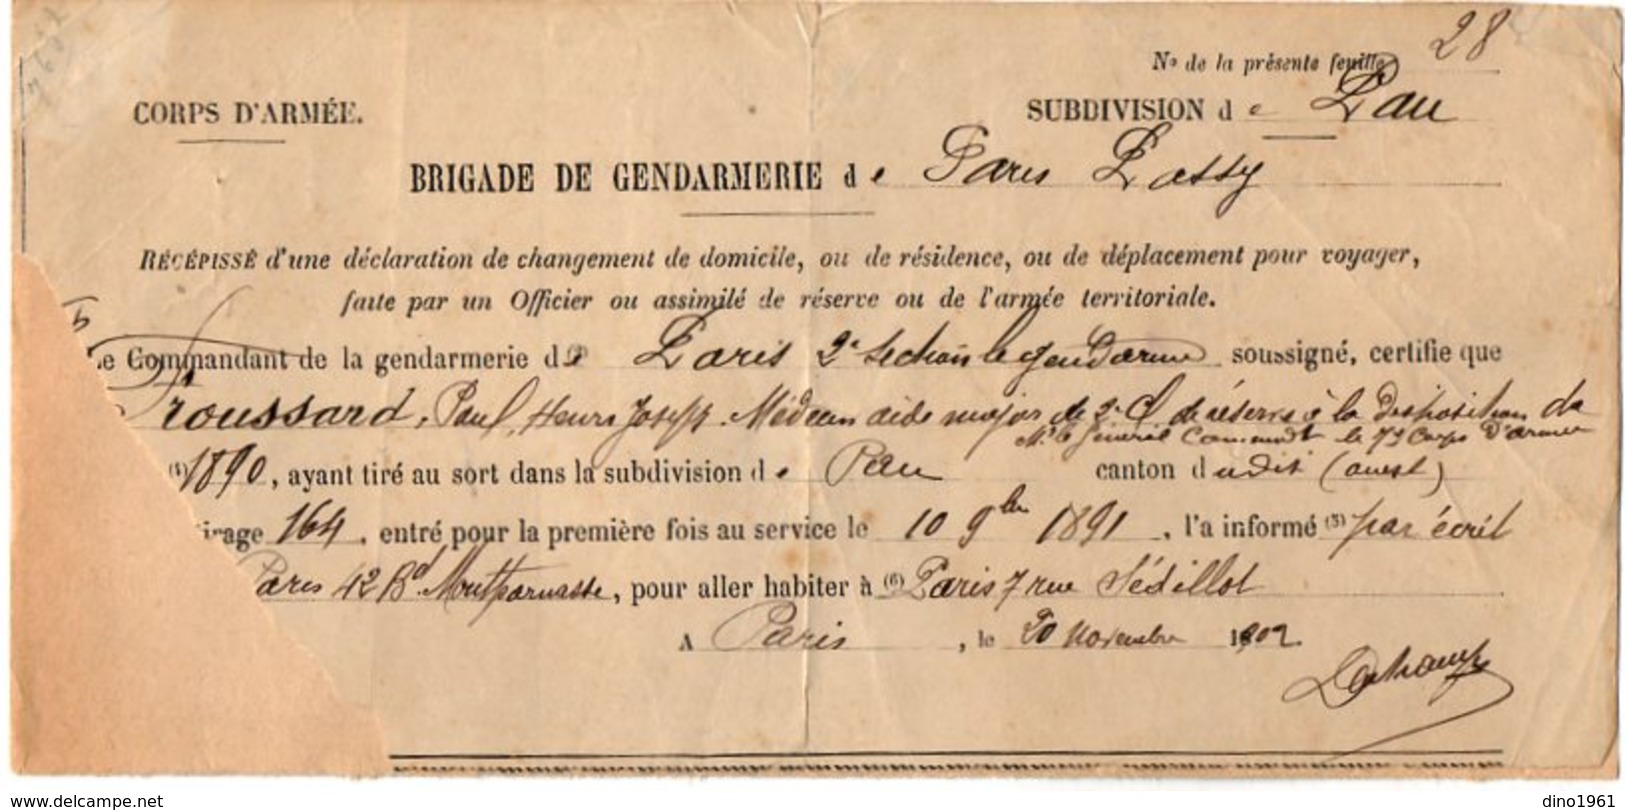 28
No de la présente feuille
CORPS D'ARMÉE.
SUBDIVISION de Pau
BRIGADE DE GENDARMERIE de Paris
RÉCÉPISSÉ d'une déclaration de changement de domicile, ou de résidence, ou de déplacement pour voyager,
faite par un Officier ou assimilé de réserve ou de l'armée territoriale.
e Commandant de la gendarmerie de Paris 2e section de gendarmerie soussigné, certifie que
Troussard, Paul, Henri Joseph. Médecin aide major de 2e Cl de réserve à la Disposition de
Mr le Général Commandt le Corps D'armée
(1) 1890, ayant tiré au sort dans la subdivision de Pau canton dudit (ouest)
irage 164, entré pour la première fois au service le 10 9bre 1891, l'a informé (5) par écrit
Paris 42 Bd Montparnasse, pour aller habiter à (6) Paris 7 rue Sédillot
A Paris, le 20 Novembre 1902
www.delcampe.net
dino1961